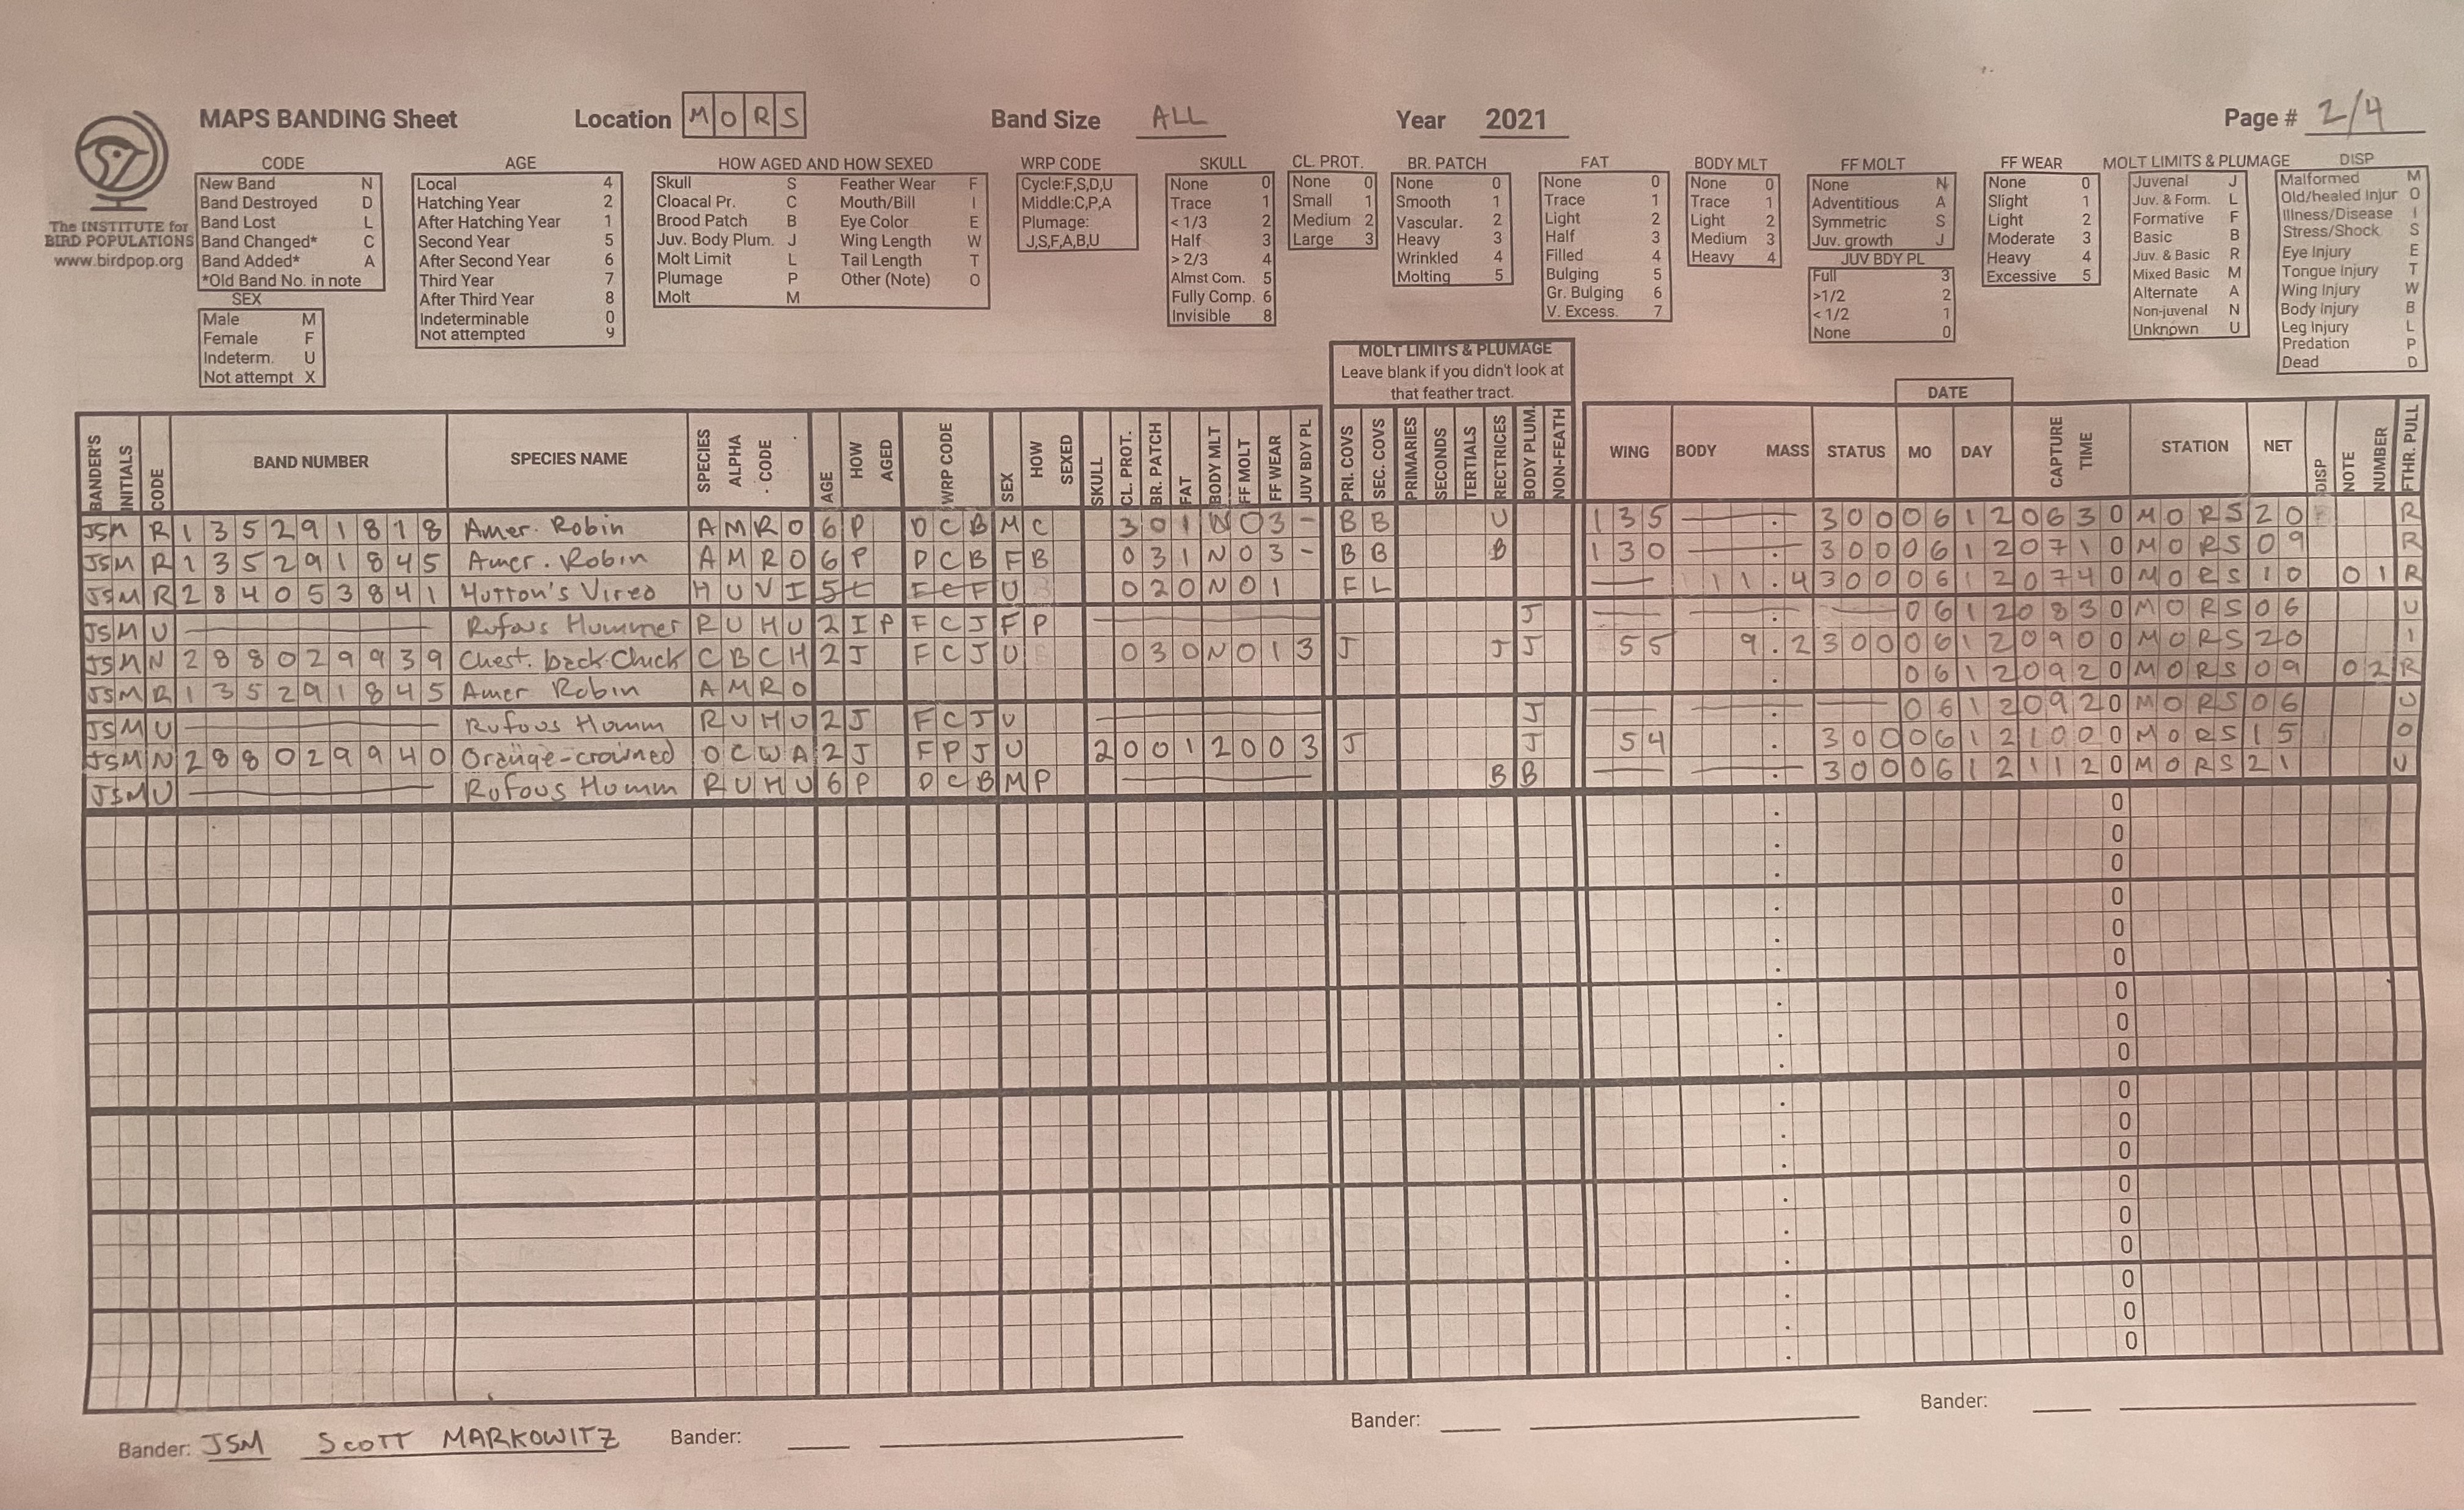 MAPS BANDING Sheet Location M O R S Band Size ALL Year 2021 Page # 2/4
The INSTITUTE for
BIRD POPULATIONS
www.birdpop.org
CODE
New Band N
Band Destroyed D
Band Lost L
Band Changed* C
Band Added* A
*Old Band No. in note
SEX
Male M
Female F
Indeterm. U
Not attempt X
AGE
Local 4
Hatching Year 2
After Hatching Year 1
Second Year 5
After Second Year 6
Third Year 7
After Third Year 8
Indeterminable 0
Not attempted 9
HOW AGED AND HOW SEXED
Skull S Feather Wear F
Cloacal Pr. C Mouth/Bill I
Brood Patch B Eye Color E
Juv. Body Plum. J Wing Length W
Molt Limit L Tail Length T
Plumage P Other (Note) O
Molt M
WRP CODE
Cycle:F,S,D,U
Middle:C,P,A
Plumage:
J,S,F,A,B,U
SKULL
None 0
Trace 1
< 1/3 2
Half 3
> 2/3 4
Almst Com. 5
Fully Comp. 6
Invisible 8
CL. PROT.
None 0
Small 1
Medium 2
Large 3
BR. PATCH
None 0
Smooth 1
Vascular. 2
Heavy 3
Wrinkled 4
Molting 5
FAT
None 0
Trace 1
Light 2
Half 3
Filled 4
Bulging 5
Gr. Bulging 6
V. Excess. 7
BODY MLT
None 0
Trace 1
Light 2
Medium 3
Heavy 4
FF MOLT
None N
Adventitious A
Symmetric S
Juv. growth J
JUV BDY PL
Full 3
>1/2 2
< 1/2 1
None 0
FF WEAR
None 0
Slight 1
Light 2
Moderate 3
Heavy 4
Excessive 5
MOLT LIMITS & PLUMAGE
Juvenal J
Juv. & Form. L
Formative F
Basic B
Juv. & Basic R
Mixed Basic M
Alternate A
Non-juvenal N
Unknown U
DISP
Malformed M
Old/healed Injur O
Illness/Disease I
Stress/Shock S
Eye Injury E
Tongue Injury T
Wing Injury W
Body Injury B
Leg Injury L
Predation P
Dead D
MOLT LIMITS & PLUMAGE
Leave blank if you didn't look at
that feather tract.
DATE
BANDER'S INITIALS CODE BAND NUMBER SPECIES NAME SPECIES ALPHA CODE AGE HOW AGED WRP CODE SEX HOW SEXED SKULL CL. PROT. BR. PATCH FAT BODY MLT FF MOLT FF WEAR JUV BDY PL PRI. COVS SEC. COVS PRIMARIES SECONDS TERTIALS RECTRICES BODY PLUM. NON-FEATH WING BODY MASS STATUS MO DAY CAPTURE TIME STATION NET DISP NOTE NUMBER FTHR. PULL
JSM R 135291818 Amer. Robin AMRO 6 P DCB M C 3 0 1 N 0 3 - B B U 135 . 300 06 12 0630 MORS 20 R
JSM R 135291845 Amer. Robin AMRO 6 P DCB F B 0 3 1 N 0 3 - B B B 130 . 300 06 12 0710 MORS 09 R
JSM R 284053841 Hutton's Vireo HUVI 5 L FCF U 0 2 0 N 0 1 F L 11.4 300 06 12 0740 MORS 10 01 R
JSM U Rufous Hummer RUHU 2 I P FCJ F P J . 06 12 0830 MORS 06 U
JSM N 288029939 Chest. back. Chick CBCH 2 J FCJ U 0 3 0 N 0 1 3 J J J 55 9.2 300 06 12 0900 MORS 20 I
JSM R 135291845 Amer Robin AMRO . 06 12 0920 MORS 09 02 R
JSM U Rufous Humm RUHU 2 J FCJ U J . 06 12 0920 MORS 06 U
JSM N 288029940 Orange-crowned OCWA 2 J FPJ U 2 0 0 1 2 0 0 3 J J 54 . 300 06 12 1000 MORS 15 O
JSM U Rufous Humm RUHU 6 P DCB M P B B . 300 06 12 1120 MORS 21 U
0
0
0
0
0
0
0
0
0
0
0
0
0
0
0
0
0
0
Bander: JSM SCOTT MARKOWITZ Bander: Bander: Bander: